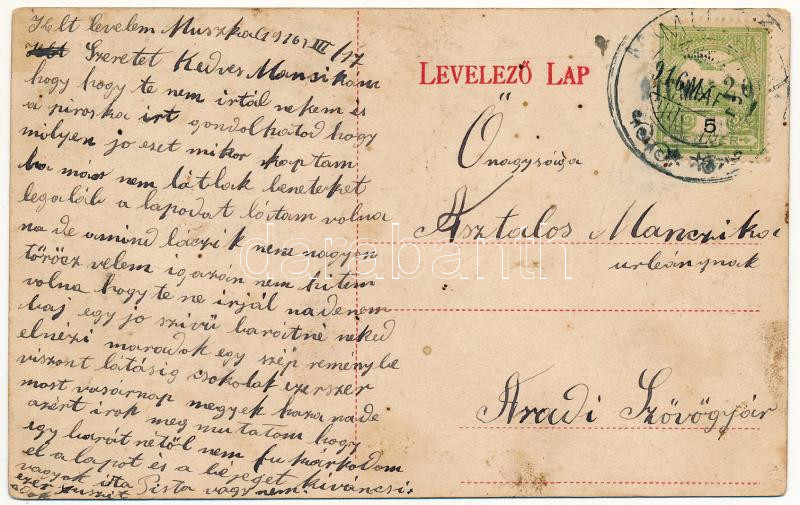 Kelt levelem Muszka 1916 III/17
Szeretet Kedves Mansikám
hogy hogy te nem irtál nekem és
a piroska irt gondolhatod hogy
molyen jo eset mikor kaptam
ha már nem látlak beneteket
legaláb a lapodat látam volna
na de amind láczik nem nagyon
törőcz velem igazán nem hitem
volna hogy te ne irjál nadenem
baj egy jo szivü barátné neked
elnézi maradok egy szép reménybe
viszont látásig csokolak ezerszer
most vasárnap megyek haza nade
azért irok meg mutatom hogy
egy barát nétől nem
el a lapot és a béjeget kiváncsi
vagyok irta Pista vagy nem.
LEVELEZŐ LAP
Őnagysága
Asztalos Manczika
urleánynak
Aradi Szövőgyár
916 MÁR 2
5
darabanth